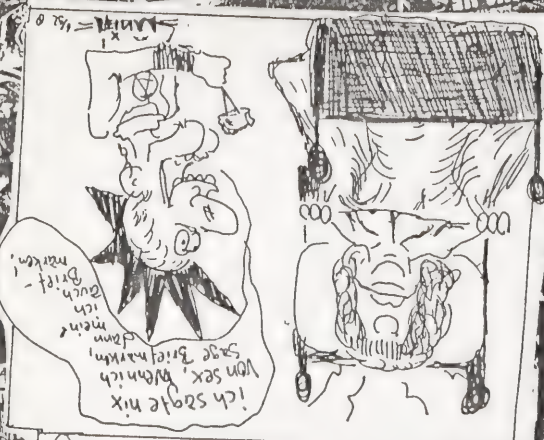 ich sagte nix
von sex, wenn ich
sage Briefmarken,
dann
mein'
ich
auch
Brief-
marken,!